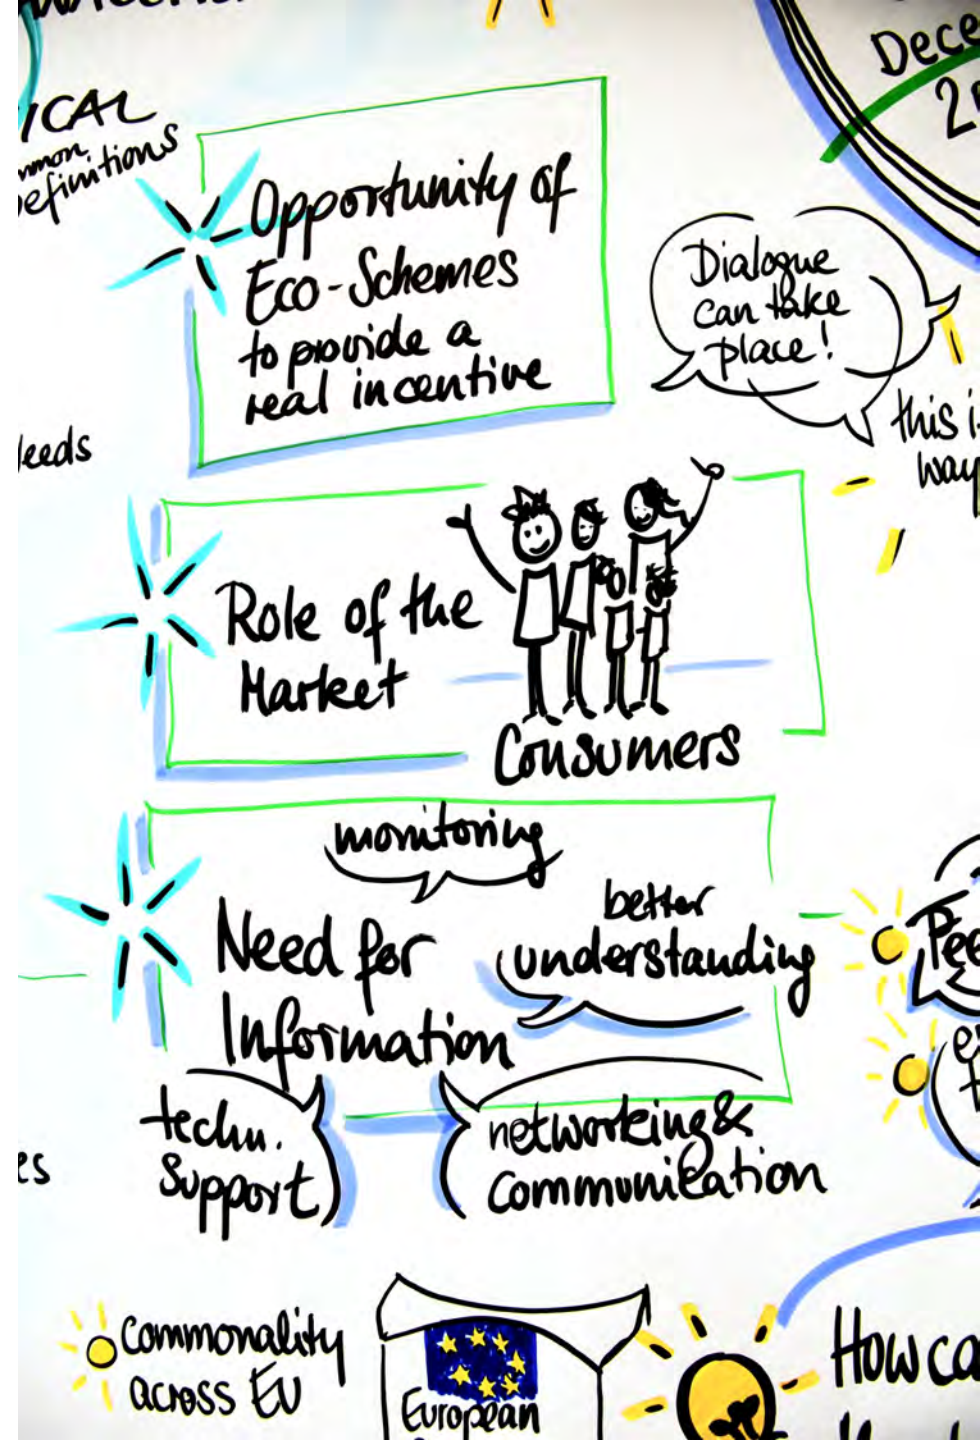 Dece
ICAL
Definitions
Opportunity of
Eco-Schemes
to provide a
real incentive
Dialogue
can take
place!
this i
way
Needs
Role of the
Market
Consumers
monitoring
better
understanding
Need for
Information
techn.
Support
networking &
communication
es
Commonality
across EU
European
How ca